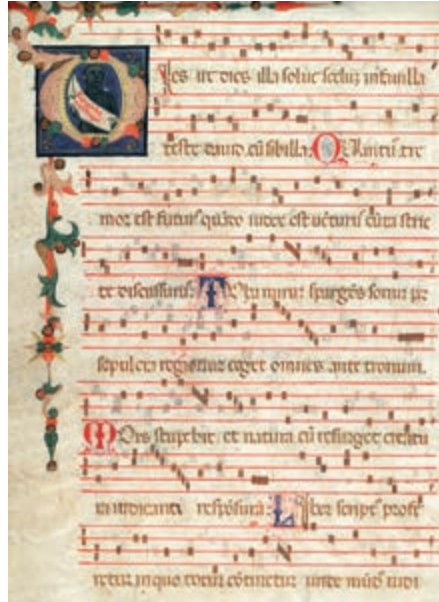 Dies ire dies illa soluet seclum in fauilla
teste dauid cũ sibilla. Quantũ tre
mor est futurus quãdo iudex est uẽturus cũta stric
te discussurus. Tuba mirum spargẽs sonum per
sepulcra regionum coget omnes ante tronum.
Mors stupebit et natura cũ resurget creatu
ra iudicanti respõsura. Liber scriptus profe
retur in quo totum cõtinetur unde mũdus iudi